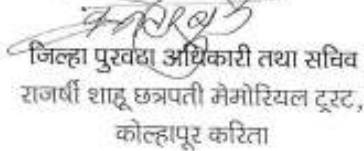 जिल्हा पुरवठा अधिकारी तथा सचिव
राजर्षी शाहू छत्रपती मेमोरियल ट्रस्ट,
कोल्हापूर करिता